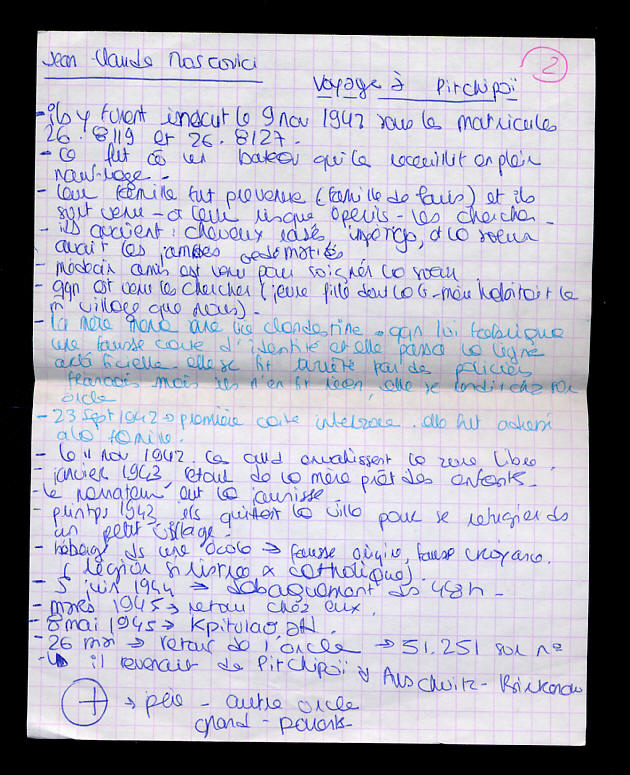 Jean Claude Moscovici
2
Voyage à Pitchipoï
- ils y furent inscrit le 9 nov 1942 sous les matricules
26.8119 et 26.8127.
- Ce fut co un bateau qui les receuillit en plein
naufrage -
- leur famille fut prévenue (famille de Paris) et ils
sont venu - à leur risque & périls - les chercher -
- ils avaient: cheveux rasés, impétigo, et la soeur
avait les jambes oedématiés
- médecin amis est venu pour soigner la soeur
- qqn est venu les chercher (jeune fille dont la G-mère habitait le
m^ village que nous) -
- la mère mena une vie clandestine. qqn lui fabriqua
une fausse carte d'identité et elle passa la ligne
elle se fit arrêté par des policiers
français mais ils n'en fit rien, elle se rendit chez son
oncle
- 23 sept 1942 → première carte interzone. elle fut
à la famille.
- le 11 nov 1942. les all envahissent la zone libre.
- janvier 1943, retour de la mère près des enfants -
- le narrateur eut la jaunisse -
- printps 1943, ils quittent la ville pour se refugier ds
un petit village -
- hébergé ds une école → fausse origine, fausse croyance.
( & catholique) -
- 5 juin 1944 → débarquement ds 48h -
- mars 1945 → retour chez eux.
- 8 mai 1945 → Kpitulat° all.
- 26 mai → retour de l'oncle → 51.251 son n°
- il revenait de Pitchipoï d'Auschwitz - Birkenau
+ → père - autre oncle
grand-parents -